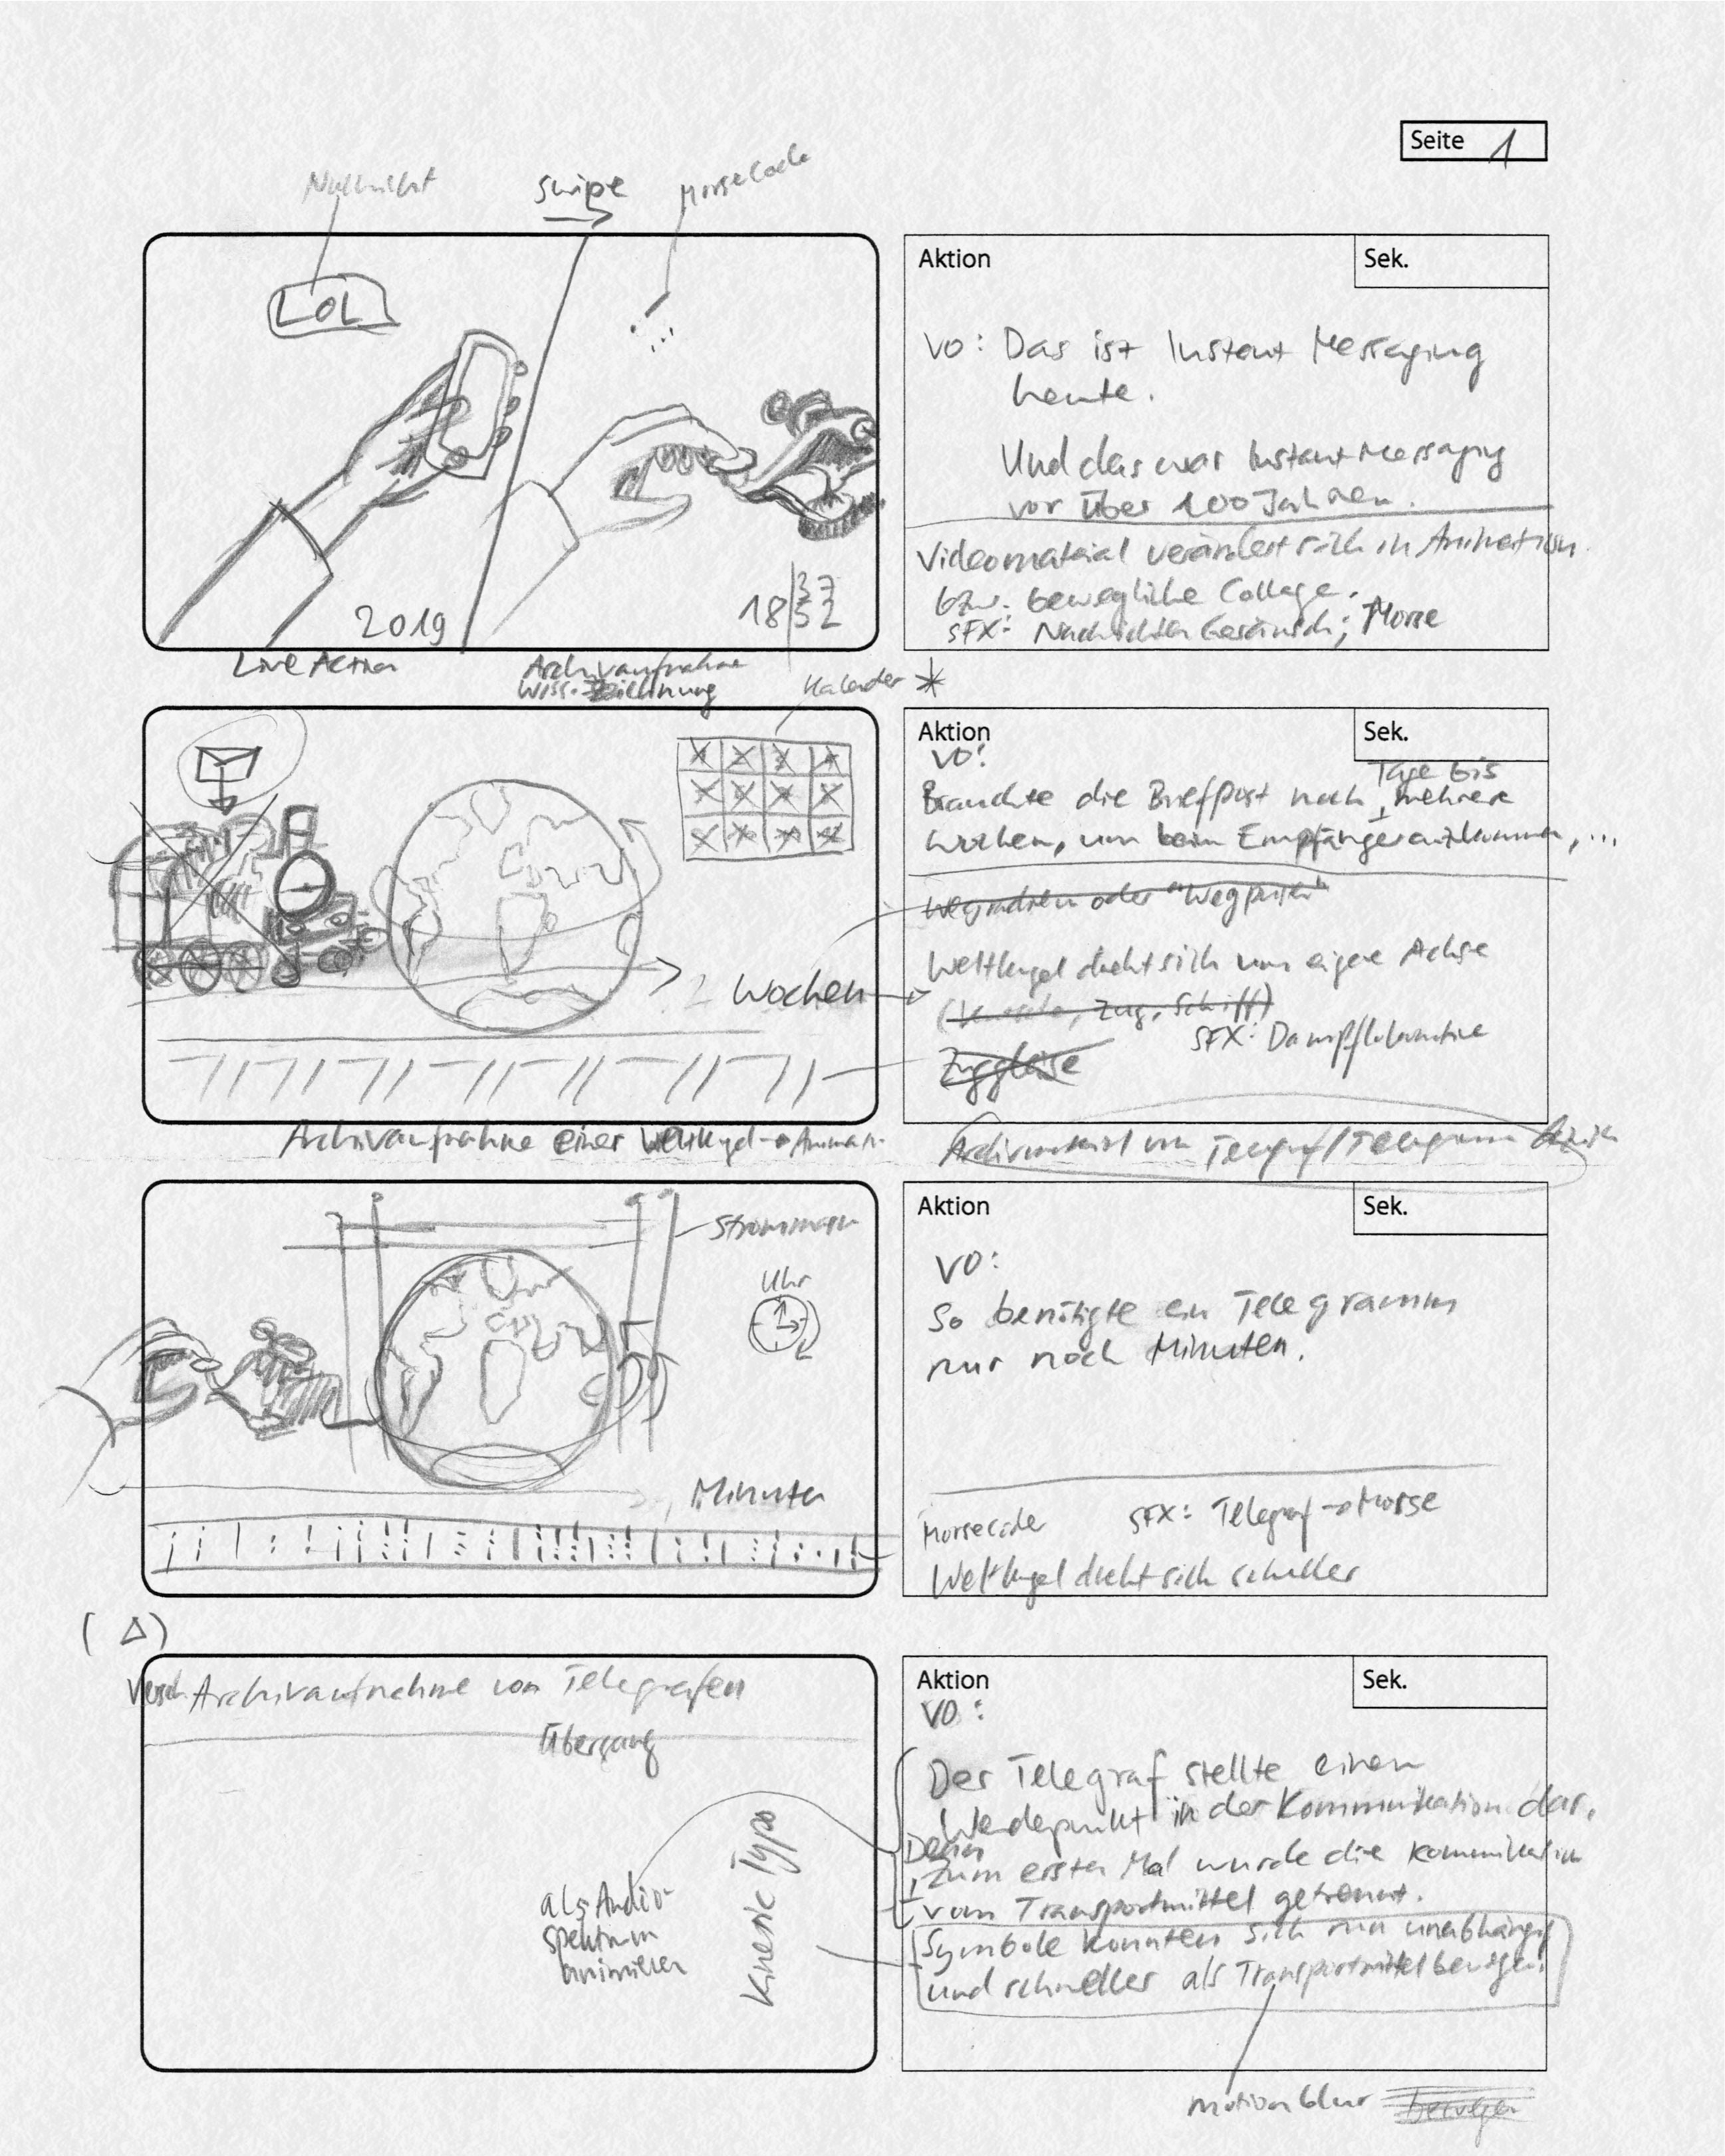 Seite 1
Nachricht
Swipe
Morsecode
LOL
2019
18 37
52
Live Action
Archivaufnahme
Wiss. Zeichnung
Aktion
Sek.
VO: Das ist Instant Messaging
heute.
Und das war Instant Messaging
vor über 100 Jahren.
Videomaterial verändert sich in Animation
bzw. bewegliche Collage.
SFX: Nachrichten Geräusch; Morse
Kalender *
2 Wochen
Archivaufnahme einer Weltkugel → Animat.
Aktion
Sek.
VO:
Tage bis
Brauchte die Briefpost noch mehrere
Wochen, um beim Empfänger anzukommen, ...
oder "Wegpunkt"
Weltkugel dreht sich um eigene Achse
Zug, Schiff)
SFX: Dampflokomotive
Zuggleise
Archivmaterial von Telegraf/Telegramm
Strommasten
Uhr
Minuten
Aktion
Sek.
VO:
So benötigte ein Telegramm
nur noch Minuten.
Morsecode SFX: Telegraf → Morse
Weltkugel dreht sich schneller
(Δ)
Versch. Archivaufnahme von Telegrafen
Übergang
als Audio-
spektrum
animieren
Kinetic Typo
Aktion
Sek.
VO:
Der Telegraf stellte einen
Wendepunkt in der Kommunikation dar.
Denn
zum ersten Mal wurde die Kommunikation
vom Transportmittel getrennt.
Symbole konnten sich nun unabhängig
und schneller als Transportmittel bewegen.
motion blur bewegen